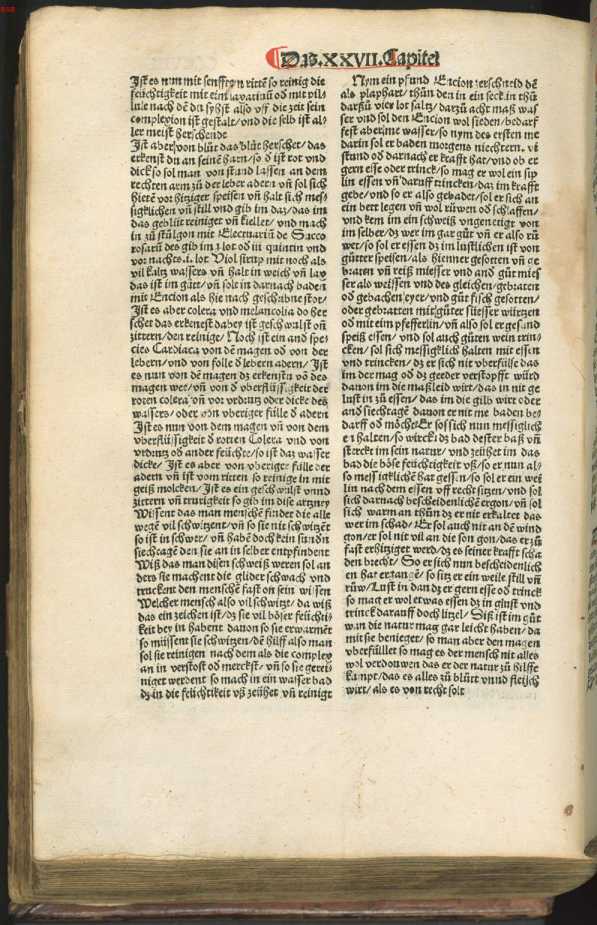 Das .XXVII. Capitel
Jst es nun mit senfften rittē so reinig die
feüchtigkeit mit eim lavatiuū od mit pil⸗
lule nach dē dū syhst also vff die zeit sein
complexion ist gestalt/vnd die selb ist al⸗
ler meist herschende
Jst aber von blůt das blůt herschet/das
erkenst du an seinē harn/so d ist rot vnd
dick so sol man von stund lassen an dem
rechten arm zů der leber adern vñ sol sich
hietē vor hitziger speisen vñ halt sich mes⸗
sigklichen vñ still vnd gib im daz/das im
das geblüt reiniget vñ kiellet/vnd mach
in zů stůlgon mit Electuariū de Succo
rosarū des gib im ʒ lot od in quintin vnd
vor nachts .i. lot Viol sirup mit noch als
vil kaltz wassers vñ halt in weich vñ lav
das ist im gůt/vñ solt in darnach baden
mit Encion als hie nach geschribne stot/
Jst es aber colera vnd melancolia do her
schet das erkenest dabey ist geschwulst oñ
zittern/den reinige/Noch ist ein and spe⸗
cies Cardiaca von dē magen od von der
lebern/vnd von fülle d lebern adern/Jst
es nun von dē magen dz erkenstu vō des
magen wee/vñ von d vberflüssigkeit der
roten colera oñ vor vrdrutz oder dicke des
wassers/oder von vberiger fülle d adern
Jst es nun von dem magen vñ von dem
vberflüssigkeit d rotten Colera vnd von
vrdrutz od ander feüchte/so ist daz wasser
dicke/Jst es aber von vberiger fülle der
adern vñ ist vom ritten so reinige in mit
geiß molcken/Jst es ein geschwulst vnnd
zittern vñ trurigkeit so gib im dise artzney
Wissent das man menschē findet die alle
wege vil schwitzent/vñ so sie nit schwitzēt
so ist in schwer/vñ habē doch kein sundn
siechtagē den sie an in selber entpfindent
Wiß das man disen schweiß weren sol an
ders sie machent die glider schwach vnd
truckent den menschē fast on sein wissen
Welcher mensch also vil schwitzt/da wiß
das ein zeichen ist/dz sie vil böser feüchti⸗
keit bey in habent dauon so sie erwarmēt
so müssent sie schwitzen/dē hilff also man
sol sie reinigen nach dem als die complex
an in verstost od merckst/vñ so sie gerei⸗
niget werdent so mach in ein wasser bad
dz in die feüchtikeit vß zeühet vñ reinigt
Nym ein pfund Encion zerschneid dē
als playhart/thůn den in ein seck in thů
darzů vier lot saltz/darzů acht maß was
ser vnd sol den Encion wol sieden/bedarf
fest aber me wasser/so nym des ersten me
darin sol er baden morgens niechtern .vi
stund od darnach er krafft hat/vnd ob er
gern esse oder trinck/so mag er wol ein sip
lin essen vñ daruff trincken/daz im krafft
gebe/vnd so er also gebadet/sol er sich an
ein bett legen vñ wol růwen od schlaffen/
vnd kem im ein schweiß vngenetigt von
im selber/dz wer im gar gůt vñ er also rů
wet/so sol er essen dz im lustlichen ist von
gůtter speisen/als hienner gesotten vñ ge
braten vñ reiß miesser vnd and gůt mies
ser als weissen vnd des gleichen/gebraten
od gebachen eyer/vnd gůt fisch gesotten/
oder gebratten mit gůter süesser würtzen
od mit eim pfefferlin/vñ also sol er gesund
speiß essen/vnd sol auch gůten wein trin⸗
cken/sol sich messigklich halten mit essen
vnd trincken/dz er sich nit vberfülle das
im der mag od dz geeder verstopfft würd
dauon im die maßleid wirt/das in nit ge
lust in zů essen/das im die gib wirt oder
and siechtagē dauon er nit me baden be⸗
darff od möchte Er sol sich nun messiglich
en halten/so wirckt dz bad dester baß vñ
stercke im sein natur/vnd zeühet im das
bad die böse feüchtigkeit vß/so er nun al⸗
so messigklichē hat gessen/so sol er ein wei
lin nach dem essen vff recht sitzen/vnd sol
sich darnach bescheidenlichē ergon/vñ sol
sich warm an thůn dz er nit erkaltet das
wer im schad/Er sol auch nit an dē wind
gon/er sol nit vil an die son gon/das er zů
fast erhitziget werd/dz es seiner krafft scha
den brecht/So er sich nun bescheidenlich
en hat ergangē/so sitz er ein weile still vñ
růw/Lust in dan dz er gern esse od trinck
so mag er wol etwas essen dz in glust vnd
trinck darauff doch litzel/Diß ist im gůt
wan die natur mag gar leicht haben/da
mit sie benieget/so man aber den magen
vberfüllet so mag es der mensch nit alles
wol verdouwen das er der natur zů hilffe
kumpt/das es alles zů blůtt vnnd fleisch
wirt/als es von recht solt